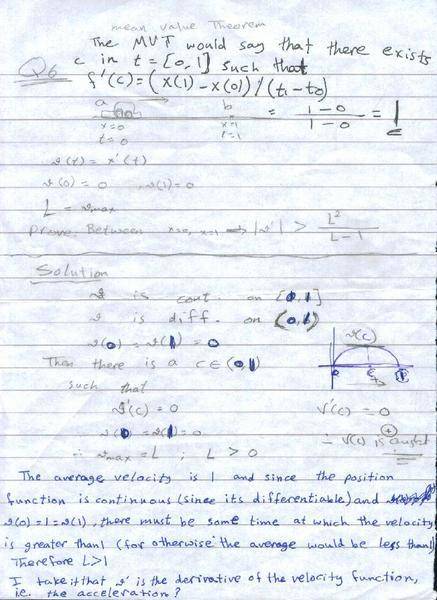 mean value Theorem
The MVT would say that there exists
Q6 c in t = [0,1] such that
f'(c) = (x(1) - x(0)) / (t₁ - t₀)
a b = 1-0 / 1-0 = 1
x=0 x=1
t=0 t=1
v(t) = x'(t)
v(0) = 0 , v(1) = 0
L = vmax
Prove. Between x=0, x=1 ⟹ |v'| > L² / L-1
Solution
v is cont. on [0,1]
v is diff. on (0,1)
v(0) = v(1) = 0
Then there is a c ∈ (0,1)
v(c)
such that
v'(c) = 0 V'(c) = 0
v(0) = v(1) = 0
∴ vmax = L ; L > 0
The average velocity is 1 and since the position
function is continuous (since its differentiable) and
v(0)=1=v(1), there must be some time at which the velocity
is greater than 1 (for otherwise the average would be less than 1)
Therefore L>1
I take it that v' is the derivative of the velocity function,
i.e. the acceleration?